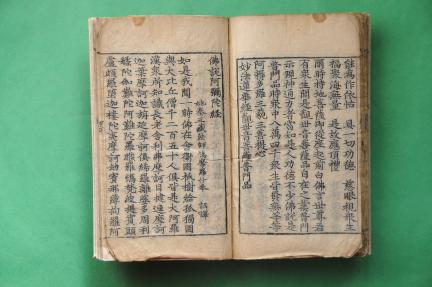 能為作依怙 具一切功德 慈眼視衆生
福聚海無量 是故應頂禮
爾時持地菩薩即從座起前白佛言世尊若
有衆生聞是觀世音菩薩品自在之業普門
示現神通力者當知是人功德不少佛說是
普門品時衆中八萬四千衆生皆發無等等
阿耨多羅三藐三菩提心
妙法蓮華經觀世音菩薩普門品
佛說阿彌陀經
姚秦三藏法師鳩摩羅什奉 詔譯
如是我聞一時佛在舍衛國祇樹給孤獨園
與大比丘僧千二百五十人俱皆是大阿羅
漢衆所知識長老舍利弗摩訶目犍連摩訶
迦葉摩訶迦旃延摩訶俱絺羅離婆多周利
槃陀伽難陀阿難陀羅睺羅憍梵波提賓頭
盧頗羅墮迦留陀夷摩訶劫賓那薄拘羅阿